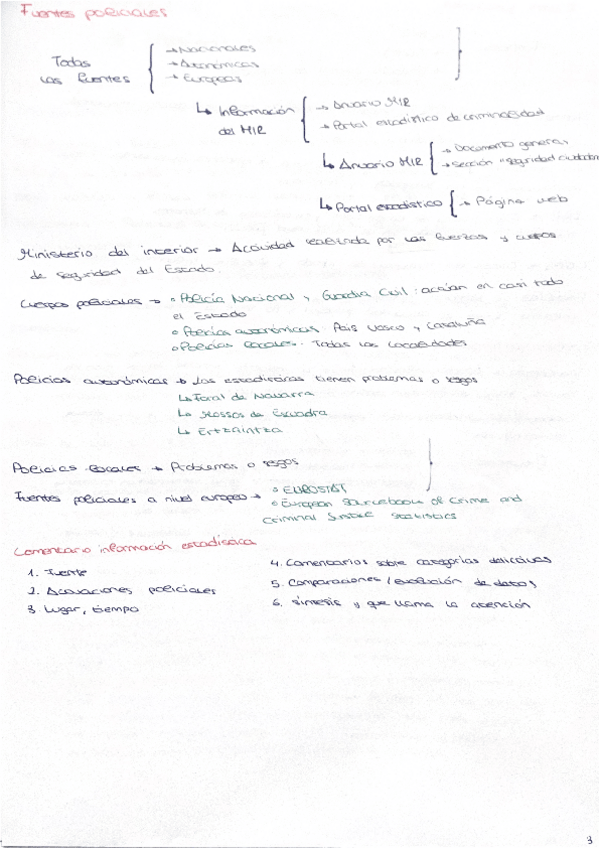 Fuentes policiales
Todas las fuentes
→ Nacionales
→ Autonómicas
→ Europeas
↳ Información del MIR
→ Anuario MIR
→ Portal estadístico de criminalidad
↳ Anuario MIR
→ Documento general
→ Sección "seguridad ciudadana
↳ Portal estadístico { → Página web
Ministerio del interior → Actividad realizada por las fuerzas y cuerpos
de seguridad del Estado.
Cuerpos policiales → • Policía Nacional y Guardia Civil: actúan en casi todo
el Estado
• Policías autonómicas: País Vasco y Cataluña
• Policías locales: Todas las localidades
Policías autonómicas → Las estadísticas tienen problemas o sesgos
↳ Foral de Navarra
↳ Mossos de Escuadra
↳ Ertzaintza
Policías locales → Problemas o sesgos
Fuentes policiales a nivel europeo → • EUROSTAT
• European Sourcebook of Crime and
Criminal Justice Statistics
Comentario información estadística
1. Fuente
2. Actuaciones policiales
3. Lugar, tiempo
4. Comentarios sobre categorías delictivas
5. Comparaciones / evolución de datos
6. Síntesis y que llama la atención
3